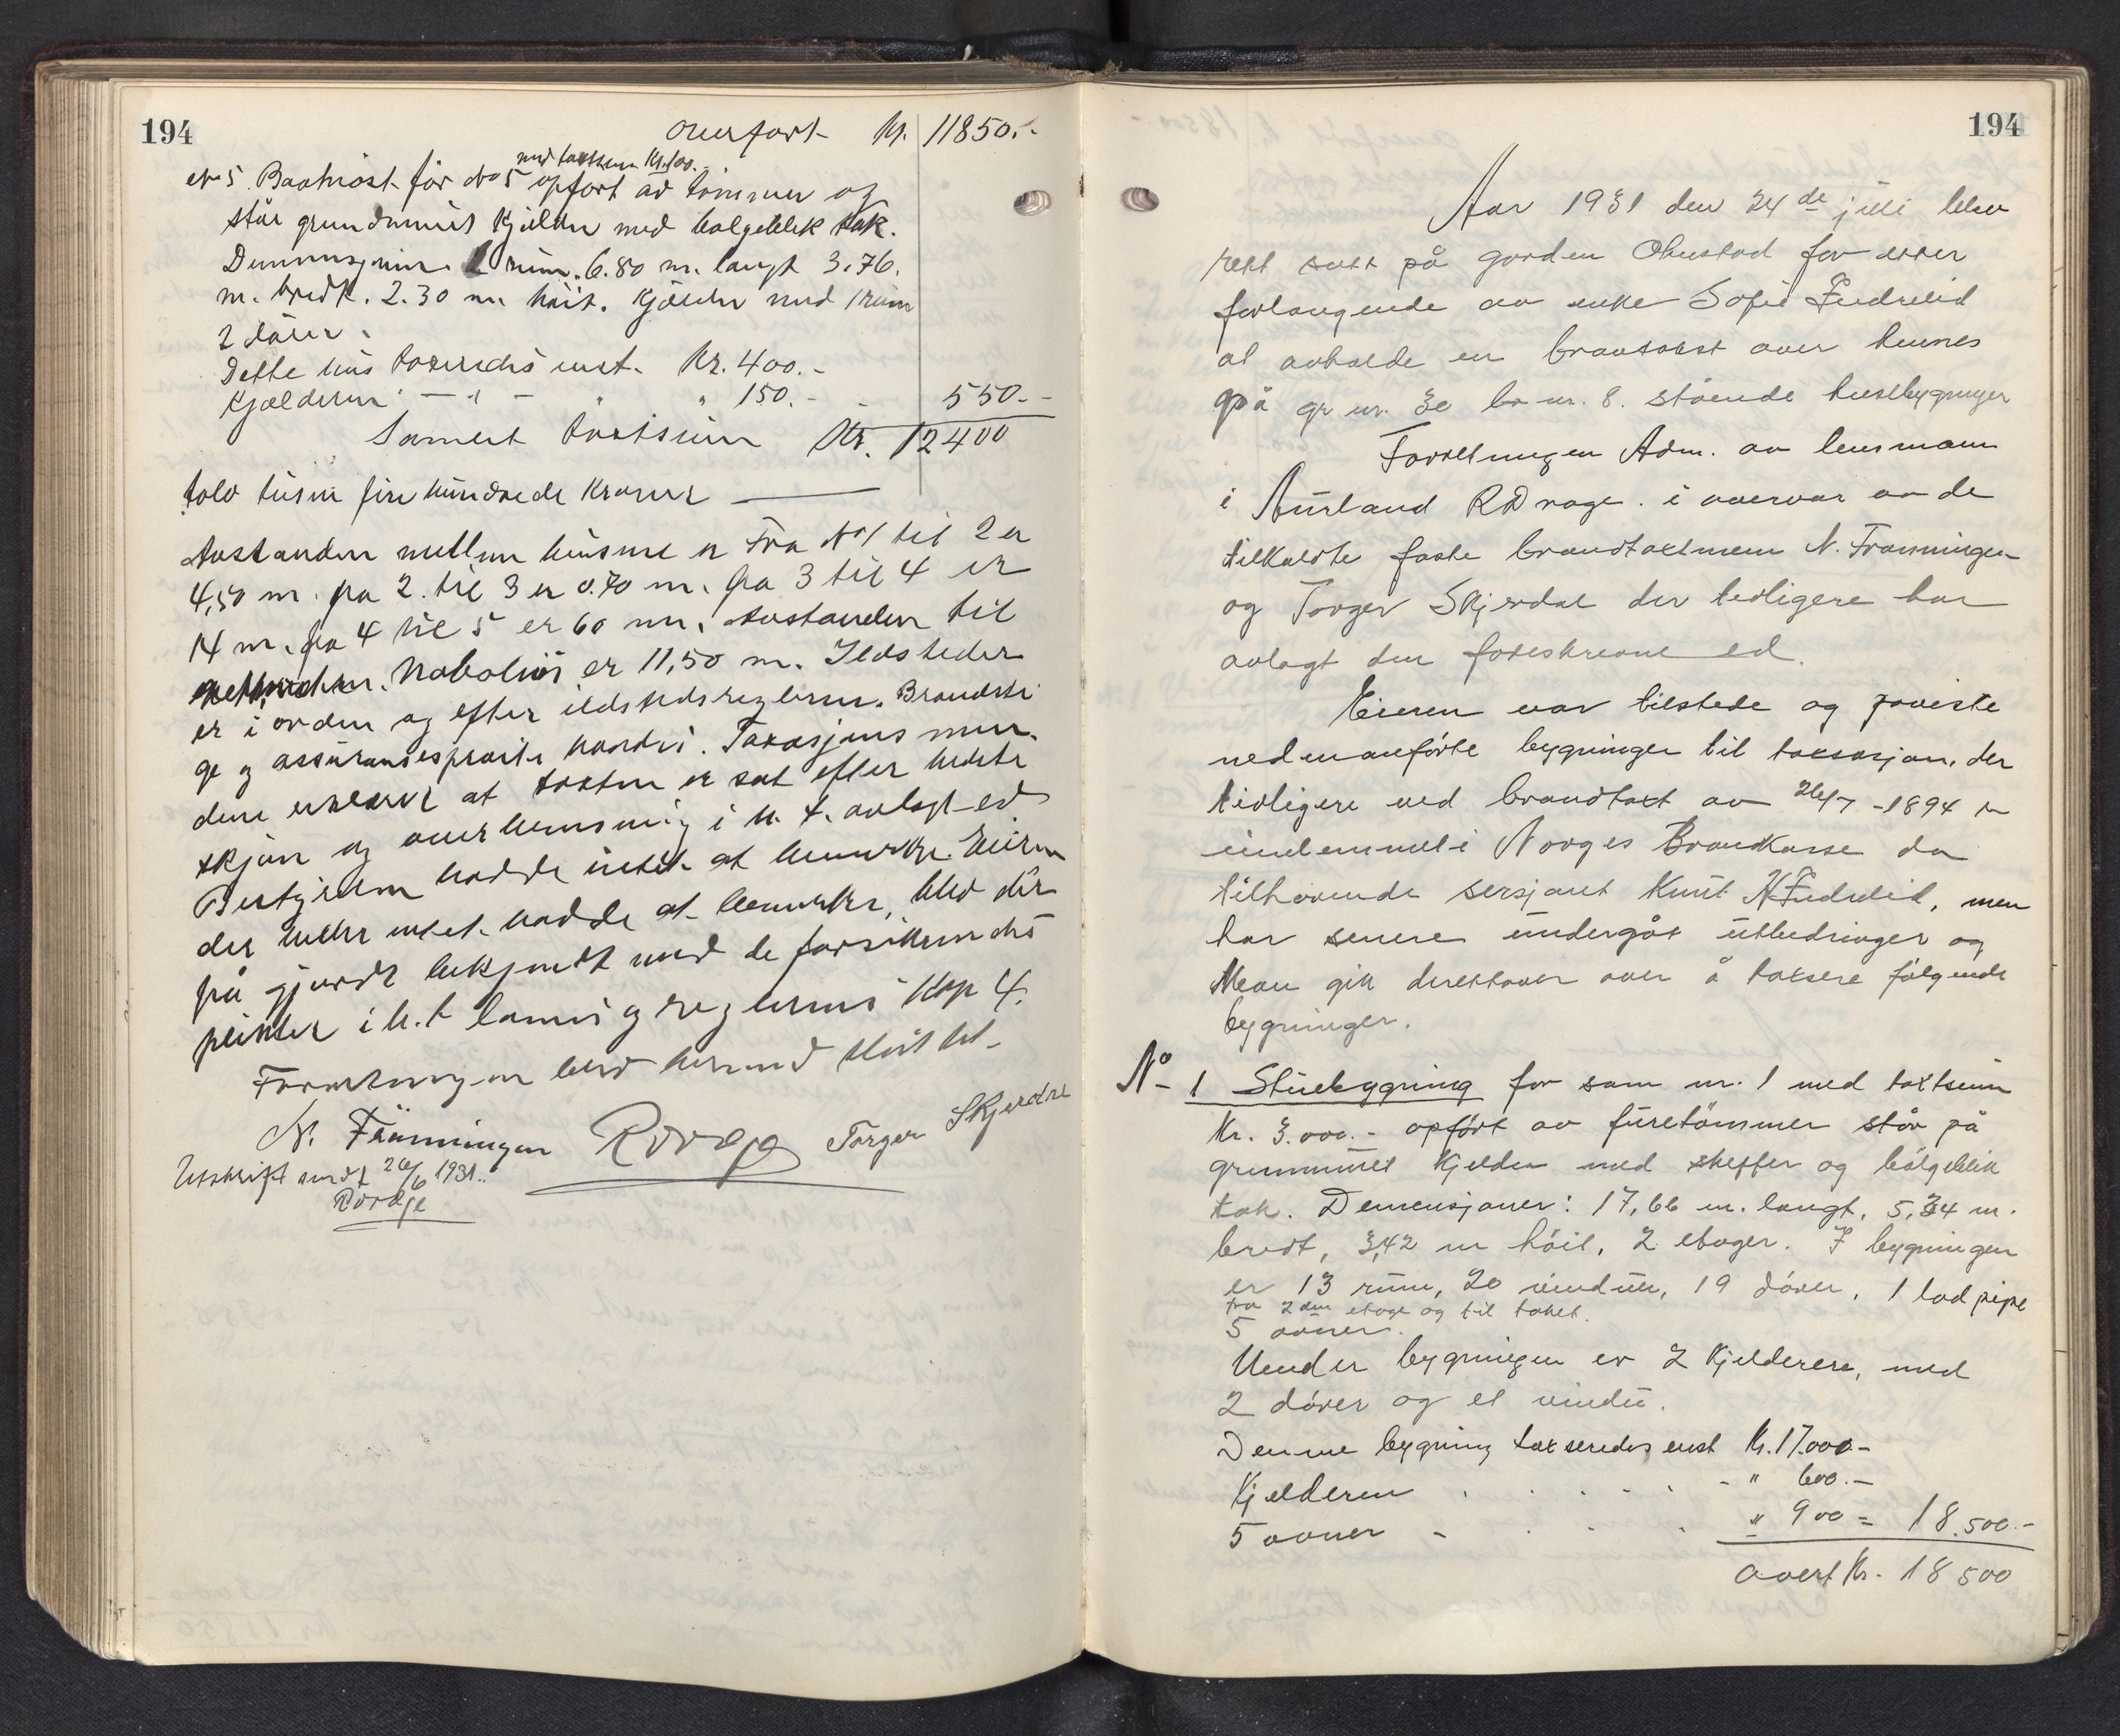 194
Overført Kr. 11850.-
med takstsum Kr. 100.-
No 5. Baathøst før No 5 opført av tømmer og
står grundmuret kjelder med bølgeblek tak.
Dimensjoner. 1 rum. 6.80 m. langt 3.76.
m. bredt. 2.30 m. høit. Kjelder med 1 rum
2 dører.
Dette hus taxeredes enst. Kr. 400.-
Kjælderen — " — " " 150.- - 550.-
Samlet takstsum Kr. 12400
tolv tusen fire hundrede kroner
Avstanden mellem husene er Fra No 1 til 2 er
4,50 m. fra 2. til 3 er 0.70 m. fra 3 til 4 er
14 m. fra 4 til 5 er 60 m. Avstanden til
nabohus er 11,50 m. Ildsteder
er i orden og efter ildstedsreglerne. Brandsti
ge og assuranseprøite havdes. Taxasjons men-
dene erklærer at taxten er sat efter bedste
skjøn og overbevisning i h. t. avlagt ed
Bestyrelsen hadde intet at bemerke. Eieren
der heller intet hadde at bemerke, blev der
på gjordt bekjendt med de forsikredes
plikter i h. t lovens og reglernes Kap 4.
Forretningen blev hermed sluttet-
N. Frønningen RDrage Torger Skjerdal
Utskrift sendt 26/6 1931..
RDrage
194
Aar 1931 den 24de juli blev
rett satt på garden Ohnstad for etter
forlangende av enke Sofie Fredreid
at avholde en brantakst over hennes
på gr nr. 30 br nr. 8. stående husebygninger
Forretningen Adm. av lensmann
i Aurland RDrage. i overvær av de
tilkaldte faste brandtakstmenn N. Frønningen
og Torger Skjerdal der tidligere har
avlagt den foreskrevne ed.
Eieren var tilstede og paviste
nedenanførte bygninger til taksasjon, der
tidligere ved brandtakst av 26/7 - 1894 er
innlemmet i Norges Brandkasse da
tilhørende sersjant Knut N. Fredreid, men
har senere undergåt utbedringer og
Man gik derettover over å taksere følgende
bygninger.
No - 1 Stuebygning for som nr. 1 med takstsum
Kr. 3.000.- opført av furetømmer står på
grunnmuret kjelder med skeffer og bølgeblik
tak. Demensjoner: 17,66 m. langt, 5,34 m.
bredt, 3,42 m høit, 2 etager. I bygningen
er 13 rum, 20 vinduer, 19 dører, 1 lod pipe
fra 2den etage og til taket.
5 ovner.
Under bygningen er 2 kjelderere, med
2 dører og et vindu.
Denne bygning takseredes enst Kr. 17.000-
Kjelderen . . . . . - " 600.-
5 ovner - . . . " 900 = 18.500.-
Overf Kr. 18 500